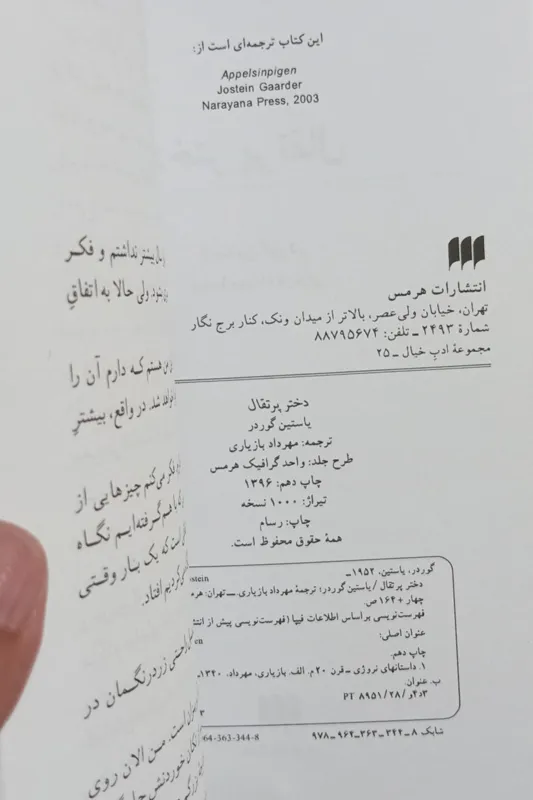 این کتاب ترجمه‌ای است از:
Appelsinpigen
Jostein Gaarder
Narayana Press, 2003
انتشارات هرمس
تهران، خیابان ولی‌عصر، بالاتر از میدان ونک، کنار برج نگار
شمارهٔ ۲۴۹۳ ــ تلفن: ۸۸۷۹۵۶۷۴
مجموعهٔ ادب خیال ــ ۲۵
دختر پرتقال
یاستین گوردر
ترجمه: مهرداد بازیاری
طرح جلد: واحد گرافیک هرمس
چاپ دهم: ۱۳۹۶
تیراژ: ۱۰۰۰ نسخه
چاپ: رسام
همهٔ حقوق محفوظ است.
گوردر، یاستین، ۱۹۵۲ــ
دختر پرتقال / یاستین گوردر؛ ترجمهٔ مهرداد بازیاری. ــ تهران: هرم
چهار + ۱۶۴ ص.
فهرست‌نویسی بر اساس اطلاعات فیپا (فهرست‌نویسی پیش از انتش
عنوان اصلی:
چاپ دهم.
۱. داستانهای نروژی ــ قرن ۲۰م. الف. بازیاری، مهرداد، ۱۳۴۰ــ
ب. عنوان.
PT ۸۹۵۱/۲۸/ ۴د۳
شابک ۸ــ۳۴۴ــ۳۶۳ــ۹۶۴ــ۹۷۸
64-363-344-8
بیشتر نداشتم و فکر
ولی حالا به اتفاقِ
هستم که دارم آن را
شد. در واقع، بیشترِ
می‌کنم چیزهایی از
گرفته‌ایم نگاه
است که یک بار وقتی
افتاد.
زردرنگمان در
است. من الان روی